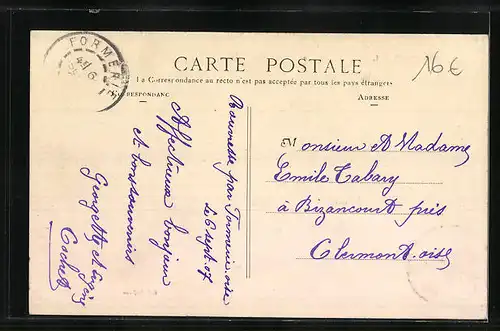 FORMERIE
6
CARTE POSTALE
16 €
La Correspondance au recto n'est pas acceptée par tous les pays étrangers
CORRESPONDANC
ADRESSE
par Formerie oise
le 6 sept. 07
Affectueux bonjour
et bons souvenirs
Georgette et
Cochet
Monsieur et Madame
Emile Tabary
à Bizancourt près
Clermont. oise